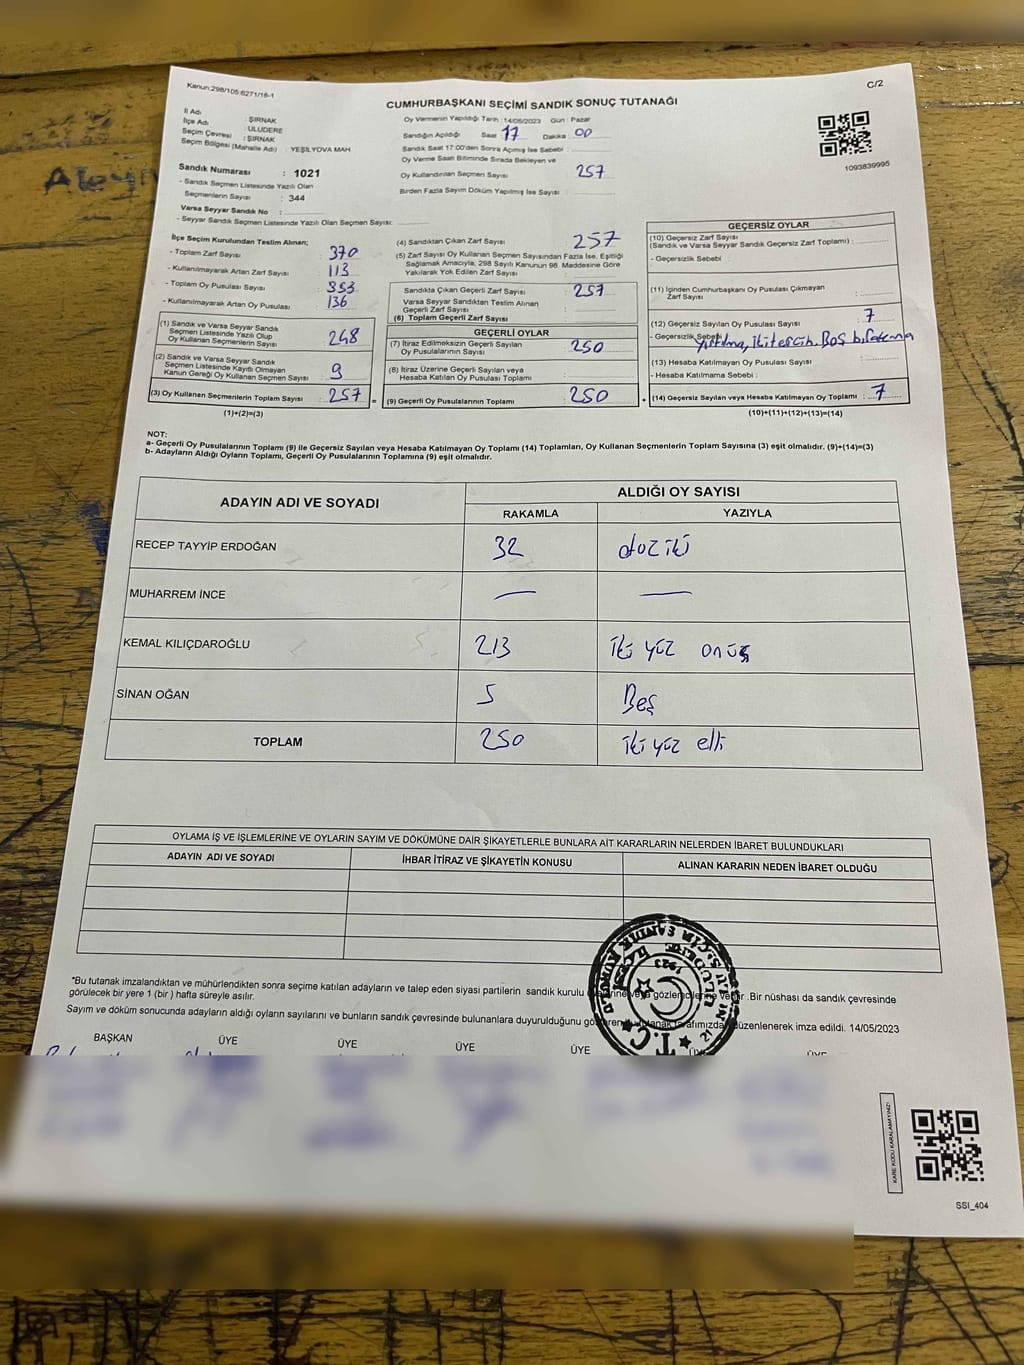 Kanun:298/105:6271/18-1
C/2
CUMHURBAŞKANI SEÇİMİ SANDIK SONUÇ TUTANAĞI
İl Adı : ŞIRNAK
İlçe Adı : ULUDERE
Seçim Çevresi : ŞIRNAK
Seçim Bölgesi (Mahalle Adı) : YEŞİLYOVA MAH
Sandık Numarası : 1021
- Sandık Seçmen Listesinde Yazılı Olan
Seçmenlerin Sayısı : 344
Varsa Seyyar Sandık No :
- Seyyar Sandık Seçmen Listesinde Yazılı Olan Seçmen Sayısı:
Oy Vermenin Yapıldığı Tarih : 14/05/2023 Gün : Pazar
Sandığın Açıldığı Saat 17 Dakika : 00
Sandık Saat 17.00'den Sonra Açılmış İse Sebebi :
Oy Verme Saati Bitiminde Sırada Bekleyen ve
Oy Kullandırılan Seçmen Sayısı : 257
Birden Fazla Sayım Döküm Yapılmış İse Sayısı :
1093839995
İlçe Seçim Kurulundan Teslim Alınan;
- Toplam Zarf Sayısı : 370
- Kullanılmayarak Artan Zarf Sayısı : 113
- Toplam Oy Pusulası : 353
- Kullanılmayarak Artan Oy Pusulası : 136
(1) Sandık ve Varsa Seyyar Sandık
Seçmen Listesinde Yazılı Olup
Oy Kullanan Seçmenlerin Sayısı : 248
(2) Sandık ve Varsa Seyyar Sandık
Seçmen Listesinde Kayıtlı Olmayan
Kanun Gereği Oy Kullanan Seçmen Sayısı : 9
(3) Oy Kullanan Seçmenlerin Toplam Sayısı : 257 =
(1)+(2)=(3)
(4) Sandıktan Çıkan Zarf Sayısı : 257
(5) Zarf Sayısı Oy Kullanan Seçmen Sayısından Fazla İse, Eşitliği
Sağlamak Amacıyla, 298 Sayılı Kanunun 98. Maddesine Göre
Yakılarak Yok Edilen Zarf Sayısı :
Sandıkta Çıkan Geçerli Zarf Sayısı : 257
Varsa Seyyar Sandıktan Teslim Alınan
Geçerli Zarf Sayısı :
(6) Toplam Geçerli Zarf Sayısı :
GEÇERLİ OYLAR
(7) İtiraz Edilmeksizin Geçerli Sayılan
Oy Pusulalarının Sayısı : 250
(8) İtiraz Üzerine Geçerli Sayılan veya
Hesaba Katılan Oy Pusulası Toplamı :
(9) Geçerli Oy Pusulalarının Toplamı : 250 +
GEÇERSİZ OYLAR
(10) Geçersiz Zarf Sayısı
(Sandık ve Varsa Seyyar Sandık Geçersiz Zarf Toplamı) :
- Geçersizlik Sebebi
(11) İçinden Cumhurbaşkanı Oy Pusulası Çıkmayan
Zarf Sayısı :
(12) Geçersiz Sayılan Oy Pusulası Sayısı : 7
- Geçersizlik Sebebi yırtılma, iki tercih. Boş
(13) Hesaba Katılmayan Oy Pusulası Sayısı :
- Hesaba Katılmama Sebebi :
(14) Geçersiz Sayılan veya Hesaba Katılmayan Oy Toplamı : 7
(10)+(11)+(12)+(13)=(14)
NOT:
a- Geçerli Oy Pusulalarının Toplamı (9) ile Geçersiz Sayılan veya Hesaba Katılmayan Oy Toplamı (14) Toplamları, Oy Kullanan Seçmenlerin Toplam Sayısına (3) eşit olmalıdır. (9)+(14)=(3)
b- Adayların Aldığı Oyların Toplamı, Geçerli Oy Pusulalarının Toplamına (9) eşit olmalıdır.
ADAYIN ADI VE SOYADI
ALDIĞI OY SAYISI
RAKAMLA YAZIYLA
RECEP TAYYİP ERDOĞAN 32 otuz iki
MUHARREM İNCE — —
KEMAL KILIÇDAROĞLU 213 iki yüz onüç
SİNAN OĞAN 5 Beş
TOPLAM 250 iki yüz elli
OYLAMA İŞ VE İŞLEMLERİNE VE OYLARIN SAYIM VE DÖKÜMÜNE DAİR ŞİKAYETLERLE BUNLARA AİT KARARLARIN NELERDEN İBARET BULUNDUKLARI
ADAYIN ADI VE SOYADI İHBAR İTİRAZ VE ŞİKAYETİN KONUSU ALINAN KARARIN NEDEN İBARET OLDUĞU
*Bu tutanak imzalandıktan ve mühürlendikten sonra seçime katılan adayların ve talep eden siyasi partilerin sandık kurulu üyelerine veya gözlemcilerine verilir .Bir nüshası da sandık çevresinde
görülecek bir yere 1 (bir ) hafta süreyle asılır.
Sayım ve döküm sonucunda adayların aldığı oyların sayılarını ve bunların sandık çevresinde bulunanlara duyurulduğunu gösteren bu tutanak tarafımızdan düzenlenerek imza edildi. 14/05/2023
BAŞKAN ÜYE ÜYE ÜYE ÜYE ÜYE ÜYE
T.C.
1923
KARE KODU KARALAMAYINIZ!
SSI_404